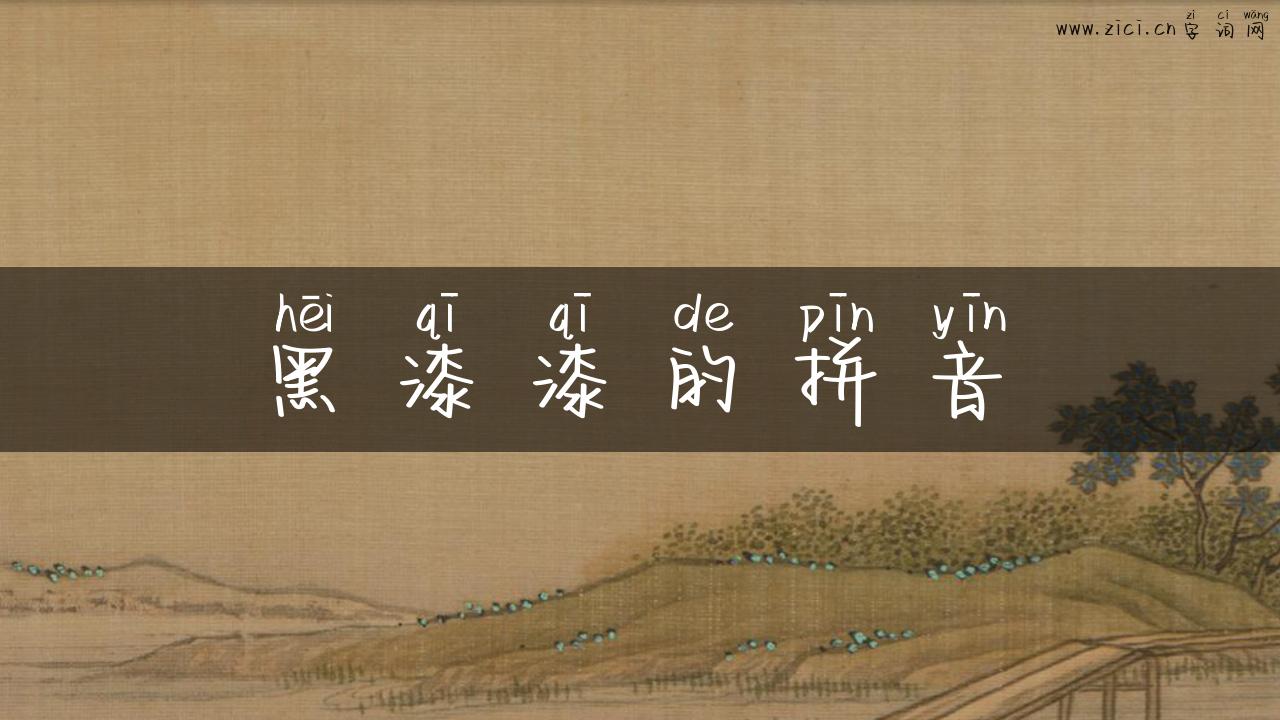 zì cí wǎng
www.zici.cn 字词网
hēi qī qī de pīn yīn
黑漆漆的拼音